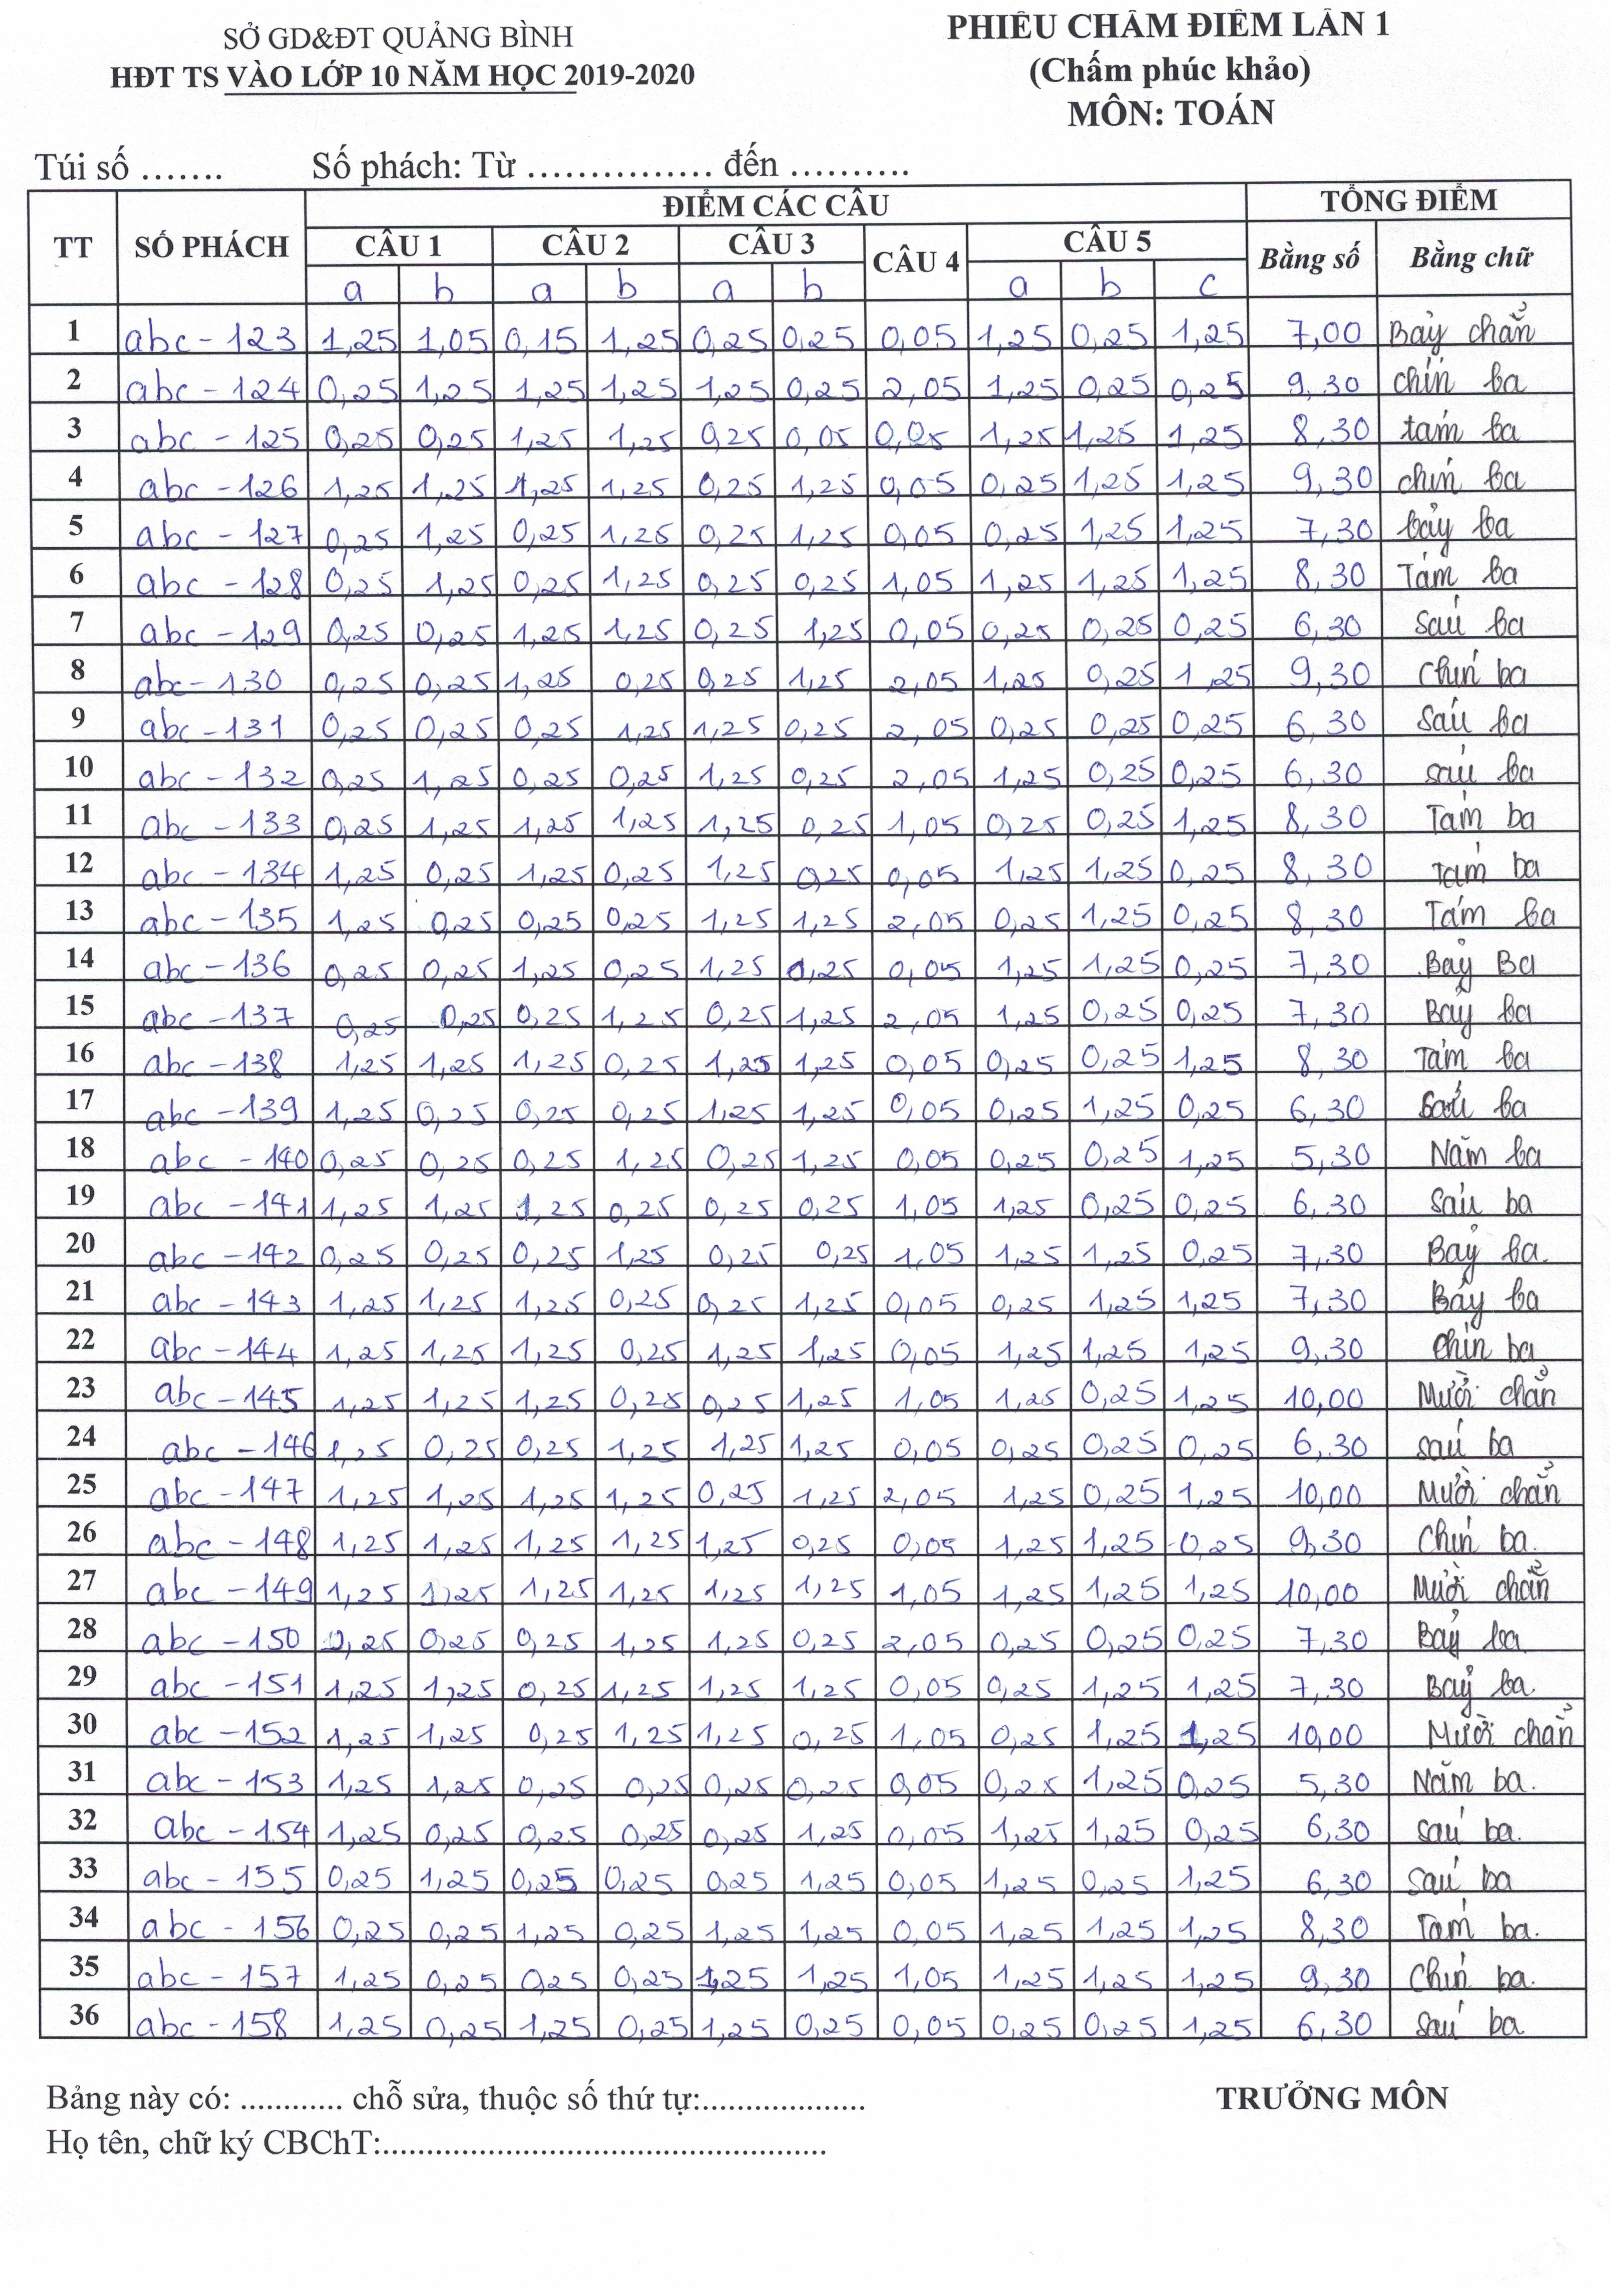 SỞ GD&ĐT QUẢNG BÌNH
HĐT TS VÀO LỚP 10 NĂM HỌC 2019-2020
PHIẾU CHẤM ĐIỂM LẦN 1
(Chấm phúc khảo)
MÔN: TOÁN
Túi số ....... Số phách: Từ ................ đến ..........
TT SỐ PHÁCH ĐIỂM CÁC CÂU TỔNG ĐIỂM
CÂU 1 CÂU 2 CÂU 3 CÂU 4 CÂU 5 Bằng số Bằng chữ
a b a b a b a b c
1 abc-123 1,25 1,05 0,15 1,25 0,25 0,25 0,05 1,25 0,25 1,25 7,00 Bảy chẵn
2 abc-124 0,25 1,25 1,25 1,25 1,25 0,25 2,05 1,25 0,25 0,25 9,30 chín ba
3 abc-125 0,25 0,25 1,25 1,25 0,25 0,05 0,05 1,25 1,25 1,25 8,30 tám ba
4 abc-126 1,25 1,25 1,25 1,25 0,25 1,25 0,05 0,25 1,25 1,25 9,30 chín ba
5 abc-127 0,25 1,25 0,25 1,25 0,25 1,25 0,05 0,25 1,25 1,25 7,30 bảy ba
6 abc-128 0,25 1,25 0,25 1,25 0,25 0,25 1,05 1,25 1,25 1,25 8,30 Tám ba
7 abc-129 0,25 0,25 1,25 1,25 0,25 1,25 0,05 0,25 0,25 0,25 6,30 Sáu ba
8 abc-130 0,25 0,25 1,25 0,25 0,25 1,25 2,05 1,25 0,25 1,25 9,30 Chín ba
9 abc-131 0,25 0,25 0,25 1,25 1,25 0,25 2,05 0,25 0,25 0,25 6,30 Sáu ba
10 abc-132 0,25 1,25 0,25 0,25 1,25 0,25 2,05 1,25 0,25 0,25 6,30 sáu ba
11 abc-133 0,25 1,25 1,25 1,25 1,25 0,25 1,05 0,25 0,25 1,25 8,30 Tám ba
12 abc-134 1,25 0,25 1,25 0,25 1,25 0,25 0,05 1,25 1,25 0,25 8,30 Tám ba
13 abc-135 1,25 0,25 0,25 0,25 1,25 1,25 2,05 0,25 1,25 0,25 8,30 Tám ba
14 abc-136 0,25 0,25 1,25 0,25 1,25 0,25 0,05 1,25 1,25 0,25 7,30 Bảy Ba
15 abc-137 0,25 0,25 0,25 1,25 0,25 1,25 2,05 1,25 0,25 0,25 7,30 Bảy ba
16 abc-138 1,25 1,25 1,25 0,25 1,25 1,25 0,05 0,25 0,25 1,25 8,30 Tám ba
17 abc-139 1,25 0,25 0,25 0,25 1,25 1,25 0,05 0,25 1,25 0,25 6,30 Sáu ba
18 abc-140 0,25 0,25 0,25 1,25 0,25 1,25 0,05 0,25 0,25 1,25 5,30 Năm ba
19 abc-141 1,25 1,25 1,25 0,25 0,25 0,25 1,05 1,25 0,25 0,25 6,30 Sáu ba
20 abc-142 0,25 0,25 0,25 1,25 0,25 0,25 1,05 1,25 1,25 0,25 7,30 Bảy ba.
21 abc-143 1,25 1,25 1,25 0,25 0,25 1,25 0,05 0,25 1,25 1,25 7,30 Bảy ba
22 abc-144 1,25 1,25 1,25 0,25 1,25 1,25 0,05 1,25 1,25 1,25 9,30 Chín ba
23 abc-145 1,25 1,25 1,25 0,25 0,25 1,25 1,05 1,25 0,25 1,25 10,00 Mười chẵn
24 abc-146 1,25 0,25 0,25 1,25 1,25 1,25 0,05 0,25 0,25 0,25 6,30 sáu ba
25 abc-147 1,25 1,25 1,25 1,25 0,25 1,25 2,05 1,25 0,25 1,25 10,00 Mười chẵn
26 abc-148 1,25 1,25 1,25 1,25 1,25 0,25 0,05 1,25 1,25 0,25 9,30 Chín ba.
27 abc-149 1,25 1,25 1,25 1,25 1,25 1,25 1,05 1,25 1,25 1,25 10,00 Mười chẵn
28 abc-150 0,25 0,25 0,25 1,25 1,25 0,25 2,05 0,25 0,25 0,25 7,30 Bảy ba
29 abc-151 1,25 1,25 0,25 1,25 1,25 1,25 0,05 0,25 1,25 1,25 7,30 Bảy ba.
30 abc-152 1,25 1,25 0,25 1,25 1,25 0,25 1,05 0,25 1,25 1,25 10,00 Mười chẵn
31 abc-153 1,25 1,25 0,25 0,25 0,25 0,25 0,05 0,25 1,25 0,25 5,30 Năm ba.
32 abc-154 1,25 0,25 0,25 0,25 0,25 1,25 0,05 1,25 1,25 0,25 6,30 sáu ba.
33 abc-155 0,25 1,25 0,25 0,25 0,25 1,25 0,05 1,25 0,25 1,25 6,30 Sáu ba
34 abc-156 0,25 0,25 1,25 0,25 1,25 1,25 0,05 1,25 1,25 1,25 8,30 Tám ba.
35 abc-157 1,25 0,25 0,25 0,25 1,25 1,25 1,05 1,25 1,25 1,25 9,30 Chín ba.
36 abc-158 1,25 0,25 1,25 0,25 1,25 0,25 0,05 0,25 0,25 1,25 6,30 sáu ba.
Bảng này có: ............ chỗ sửa, thuộc số thứ tự:...................
TRƯỞNG MÔN
Họ tên, chữ ký CBChT:....................................................